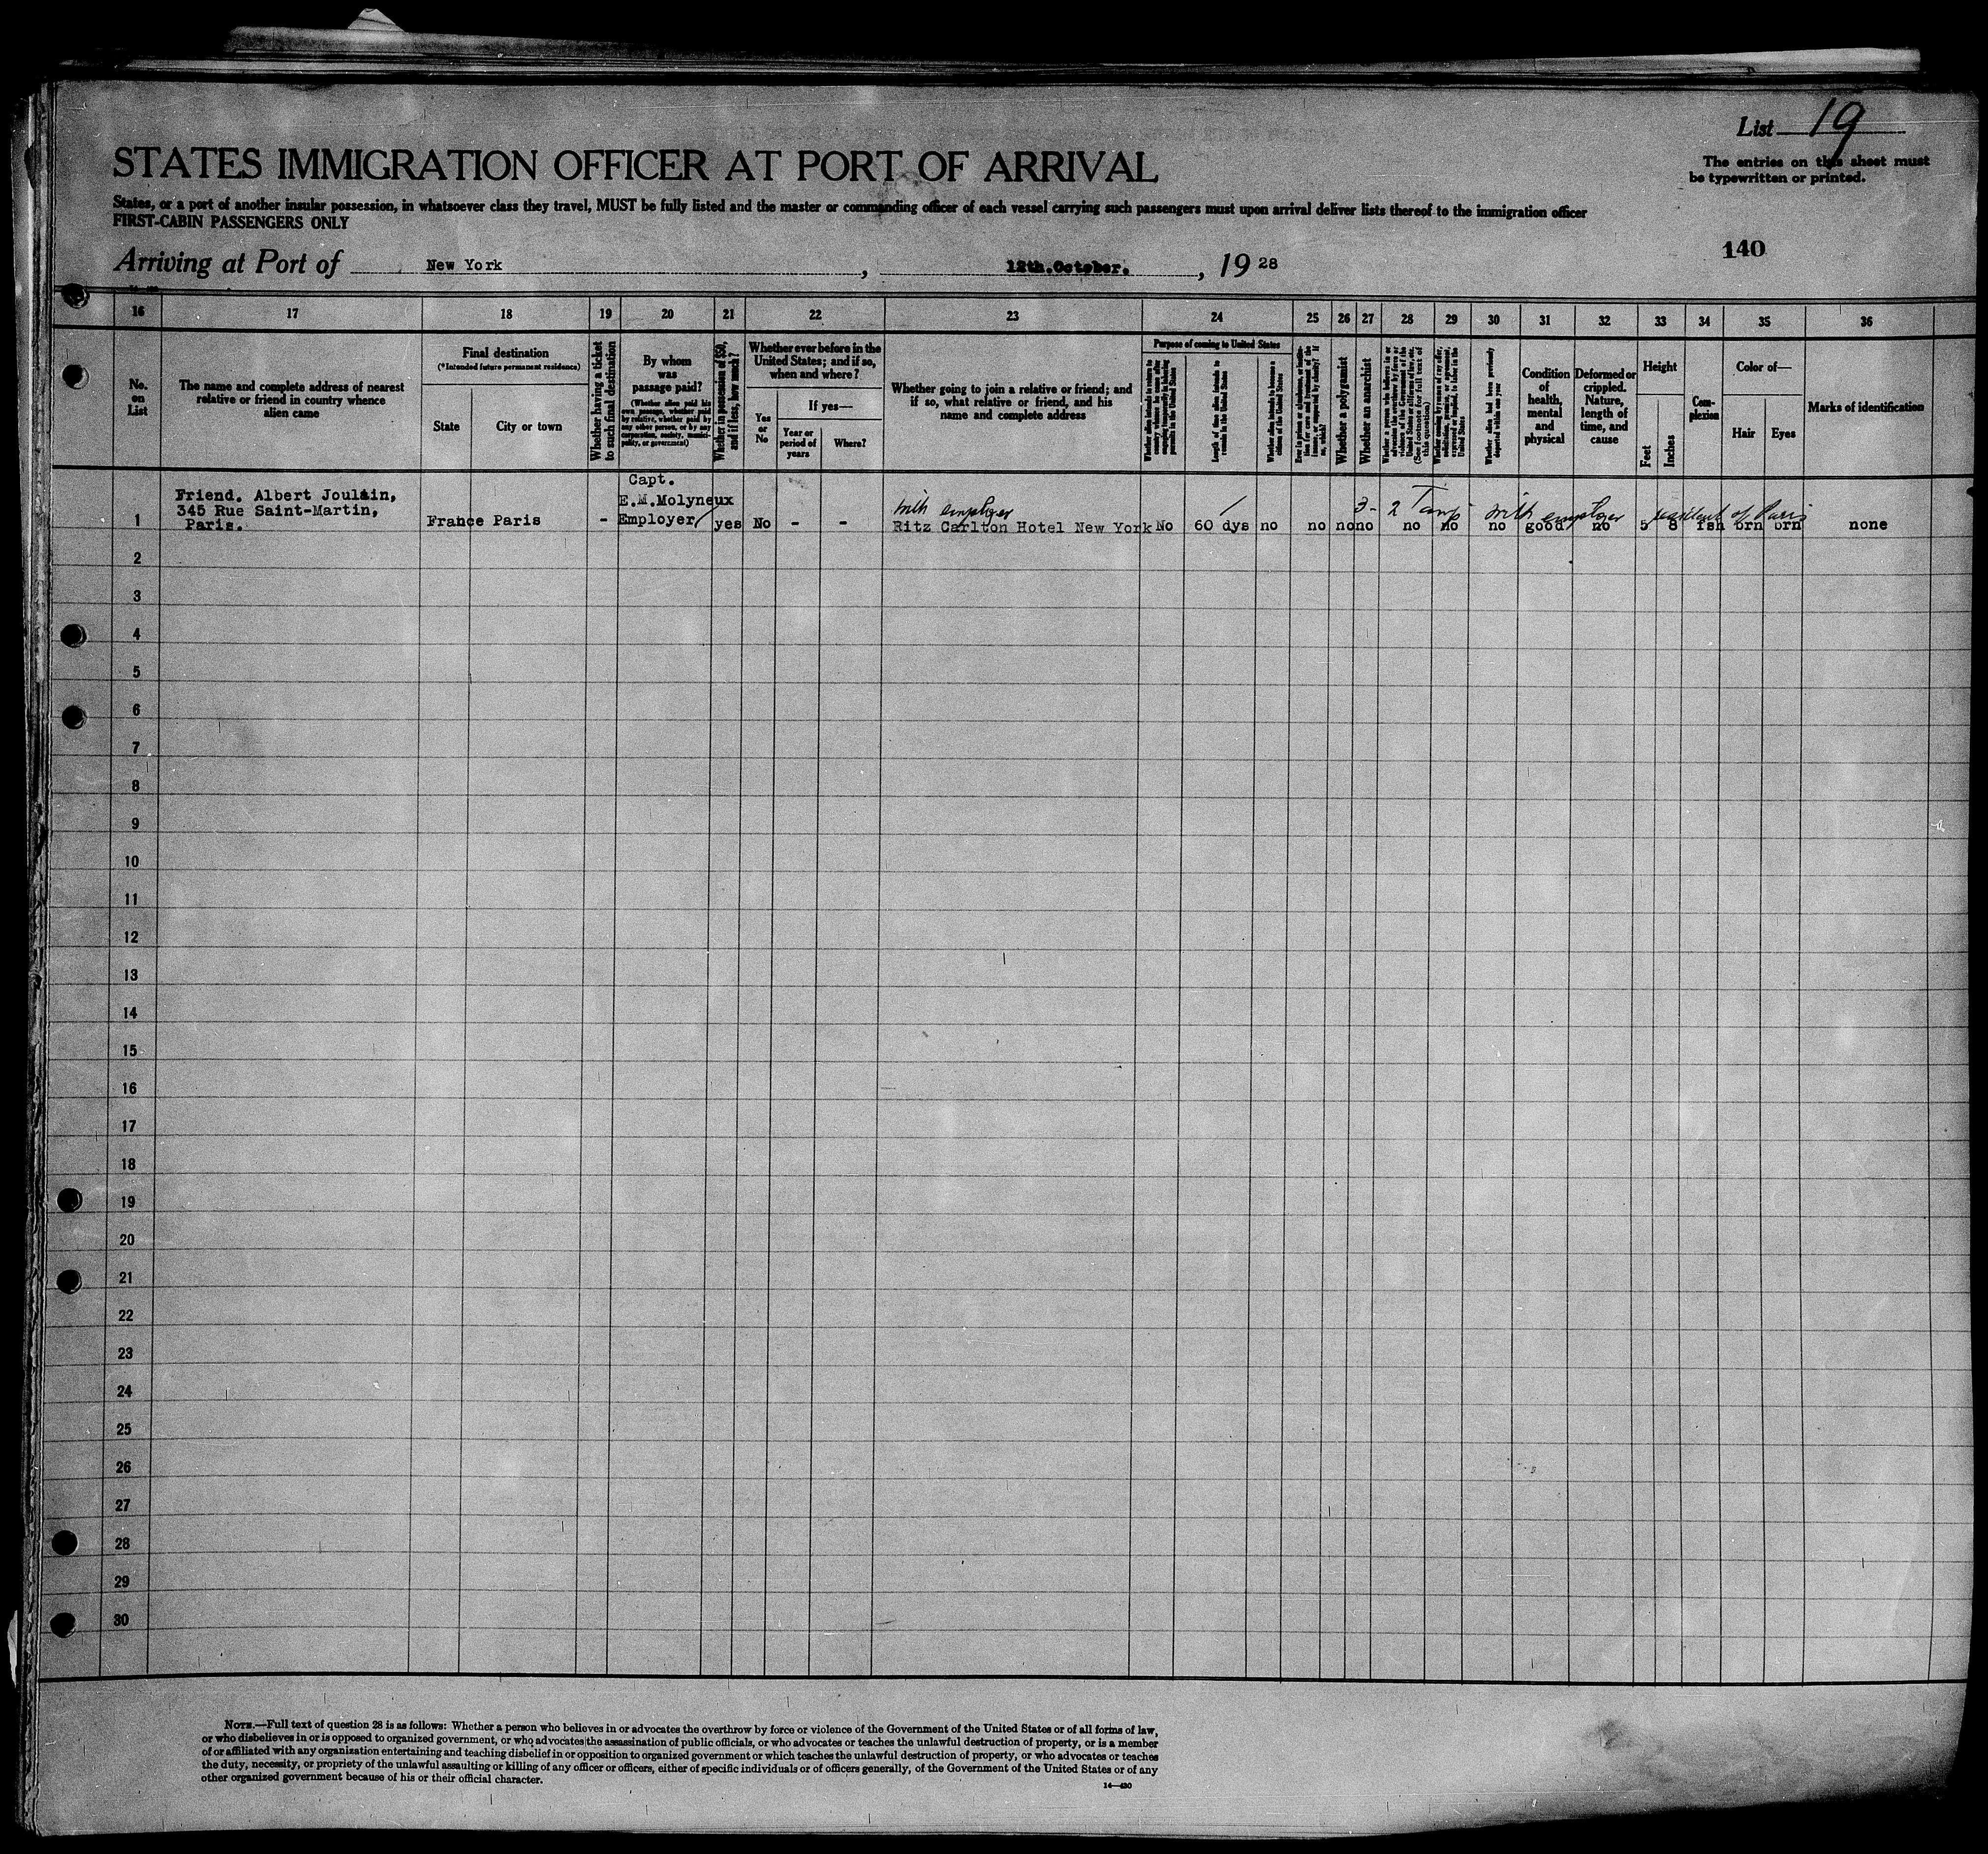 List 19
The entries on this sheet must
be typewritten or printed.
STATES IMMIGRATION OFFICER AT PORT OF ARRIVAL
States, or a port of another insular possession, in whatsoever class they travel, MUST be fully listed and the master or commanding officer of each vessel carrying such passengers must upon arrival deliver lists thereof to the immigration officer
FIRST-CABIN PASSENGERS ONLY
140
Arriving at Port of New York, 12th.October., 1928
16 17 18 19 20 21 22 23 24 25 26 27 28 29 30 31 32 33 34 35 36
No.
on
List
The name and complete address of nearest
relative or friend in country whence
alien came
Final destination
(*Intended future permanent residence)
State
City or town
Whether having a ticket
to such final destination
By whom
was
passage paid?
(Whether alien paid his
own passage, whether paid
by relative, whether paid by
any other person, or by any
corporation, society, munici-
pality, or government)
Whether in possession of $50,
and if less, how much?
Whether ever before in the
United States; and if so,
when and where?
Yes
or
No
If yes—
Year or
period of
years
Where?
Whether going to join a relative or friend; and
if so, what relative or friend, and his
name and complete address
Purpose of coming to United States
Whether alien intends to return to
country whence he came after
engaging temporarily in laboring
pursuits in the United States
Length of time alien intends to
remain in the United States
Whether alien intends to become a
citizen of the United States
Whether a polygamist
Whether an anarchist
(See footnote for full text of
this question)
Whether alien had been previously
deported within one year
Condition
of
health,
mental
and
physical
Deformed or
crippled.
Nature,
length of
time, and
cause
Height
Feet
Inches
Com-
plexion
Color of—
Hair
Eyes
Marks of identification
Capt.
Friend. Albert Joulain,
E.M.Molyneux
345 Rue Saint-Martin,
with employer 3- 2 Temp with employer resident of Paris
1 Paris. France Paris - Employer yes No - - Ritz Carlton Hotel New York No 60 dys no no no no no no no good no 5 8 fsh brn brn none
2
3
4
5
6
7
8
9
10
11
12
13
14
15
16
17
18
19
20
21
22
23
24
25
26
27
28
29
30
NOTE.—Full text of question 28 is as follows: Whether a person who believes in or advocates the overthrow by force or violence of the Government of the United States or of all forms of law,
or who disbelieves in or is opposed to organized government, or who advocates the assassination of public officials, or who advocates or teaches the unlawful destruction of property, or is a member
of or affiliated with any organization entertaining and teaching disbelief in or opposition to organized government or which teaches the unlawful destruction of property, or who advocates or teaches
the duty, necessity, or propriety of the unlawful assaulting or killing of any officer or officers, either of specific individuals or of officers generally, of the Government of the United States or of any
other organized government because of his or their official character.
14—430